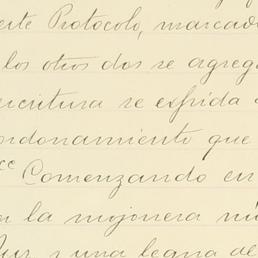 este Protocolo, marcad
los otros dos se agreg
escritura se espida
ordonamiento que
Comenzando en
la mojonera
y una legua de